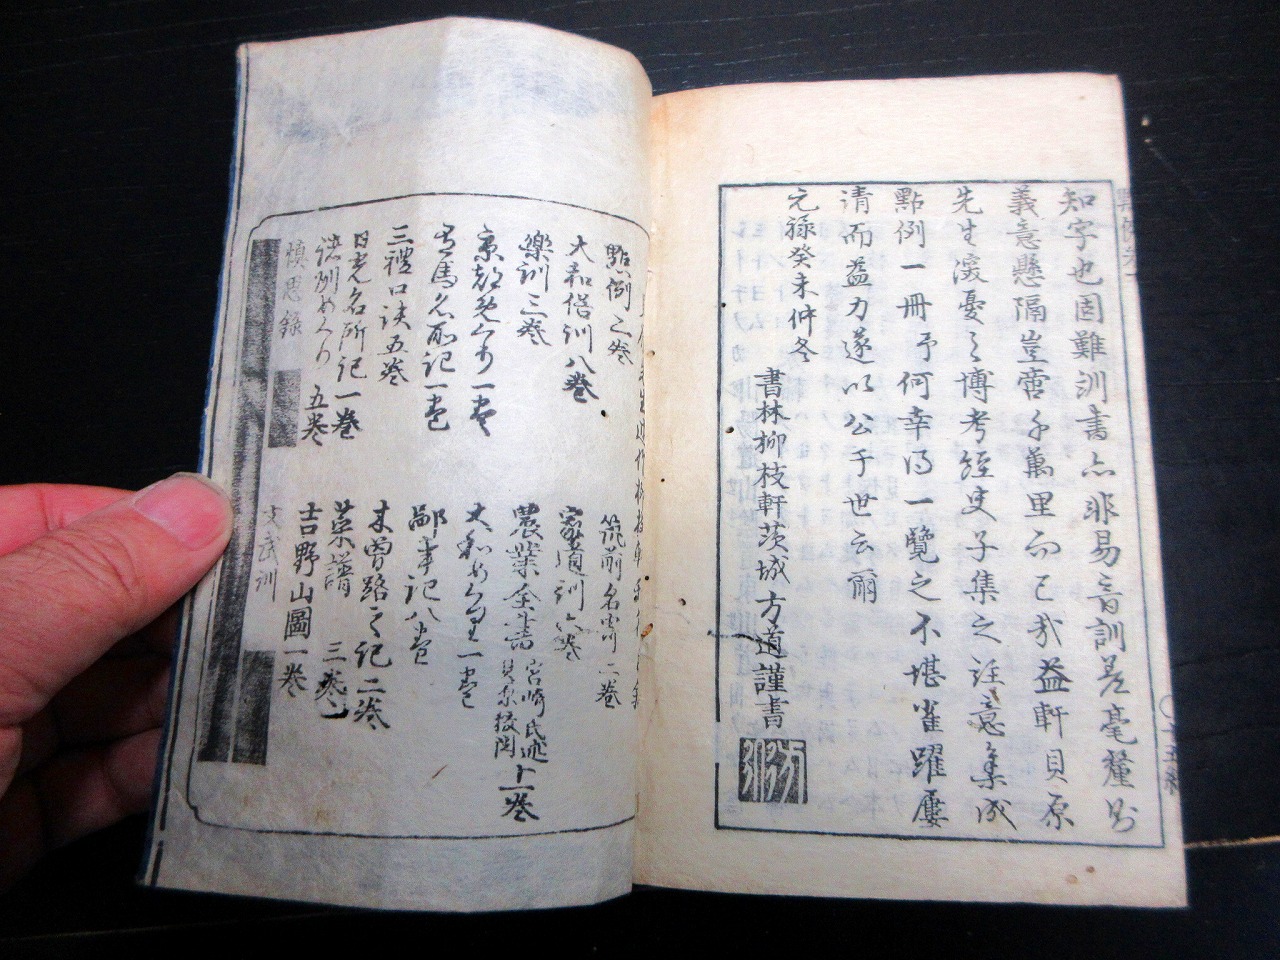 知字也固難訓書亦非易音訓差毫釐則
義意懸隔豈啻千萬里而已哉益軒貝原
先生深憂之博考經史子集之註意集成
點例一冊予何幸得一覽之不堪雀躍屢
请而益力遂以公于世云爾
元祿癸未仲冬
書林柳枝軒茨城方道謹書
點例二卷
筑前名寄二卷
大和俗訓八卷
家道訓六卷
樂訓三卷
農業全書 宮崎氏述 貝原校閲 十一卷
京都めくり一卷
大和めくり一卷
有馬名所記一卷
鄙事記八卷
三禮口訣五卷
木曽路之記二卷
日光名所記一卷
菜譜 三卷
諸州めくり 五卷
吉野山圖一卷
愼思錄
文武訓